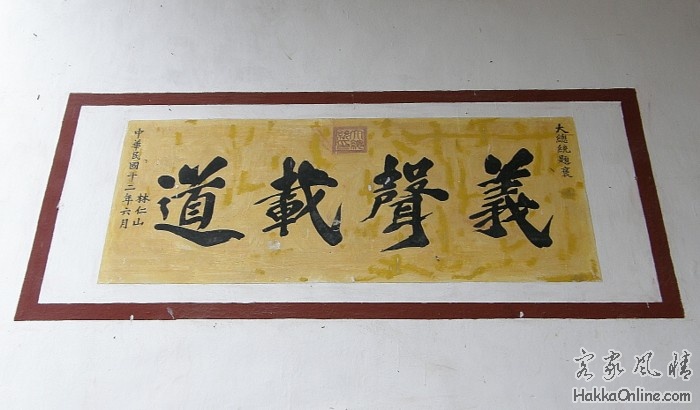 大總統題褒
義聲載道
中華民國十二年六月
林仁山
客家風情
HakkaOnline.com